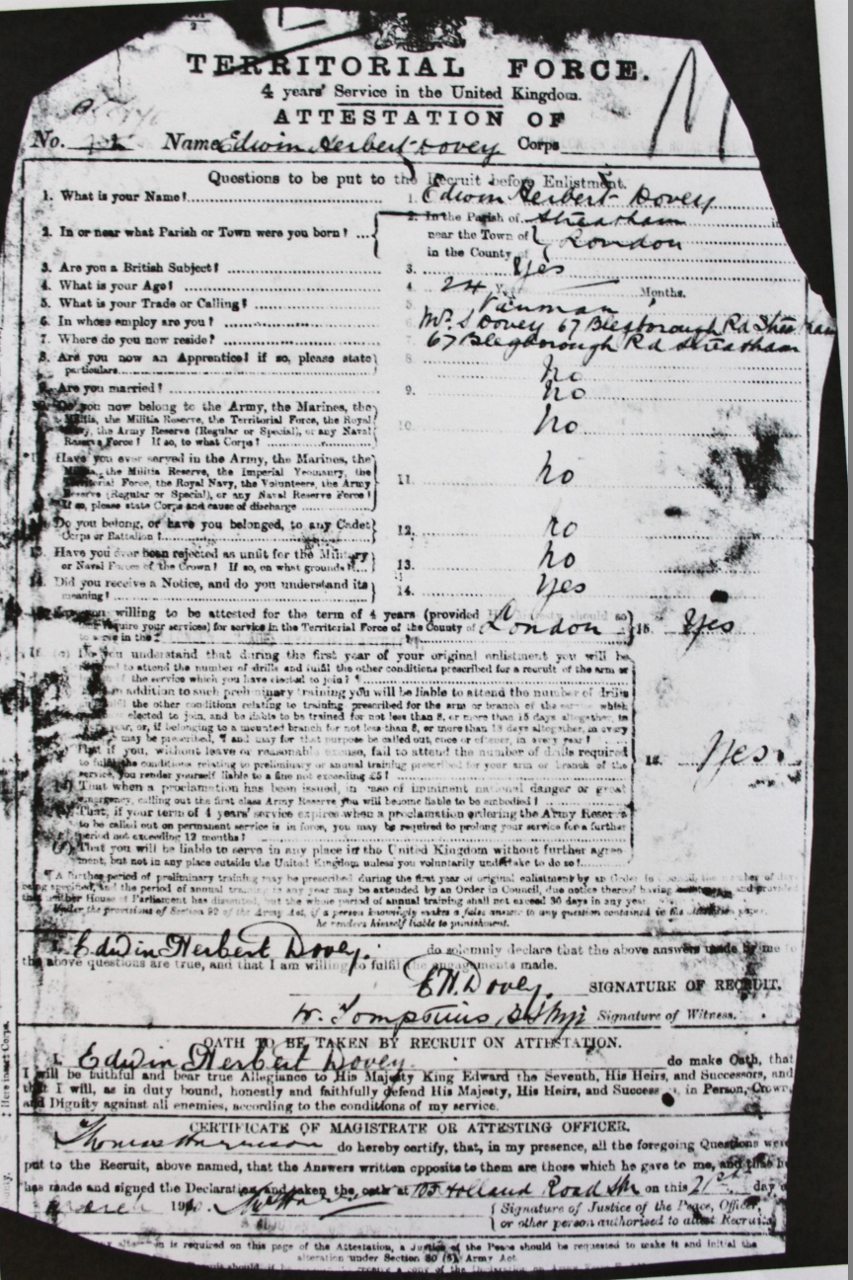 TERRITORIAL FORCE.
4 years' Service in the United Kingdom.
ATTESTATION OF
No. Name Edwin Herbert Dovey Corps
Questions to be put to the Recruit before Enlistment.
1. What is your Name? 1. Edwin Herbert Dovey
2. In or near what Parish or Town were you born? ... 2. In the Parish of Streatham in
near the Town of London
in the County of
3. Are you a British Subject? 3. Yes
4. What is your Age? 4. 24 Years Months.
5. What is your Trade or Calling? 5.
6. In whose employ are you? Mr. S Dovey 67 Blegborough Rd Streatham
7. Where do you now reside? 67 Blegborough Rd Streatham
8. Are you now an Apprentice? if so, please state particulars 8. No
9. Are you married? 9. No
Do you now belong to the Army, the Marines, the
Militia, the Militia Reserve, the Territorial Force, the Royal
Navy, the Army Reserve (Regular or Special), or any Naval 10. No
Reserve Force? If so, to what Corps?
Have you ever served in the Army, the Marines, the
Militia, the Militia Reserve, the Imperial Yeomanry, the
Territorial Force, the Royal Navy, the Volunteers, the Army 11. No
Reserve (Regular or Special), or any Naval Reserve Force?
If so, please state Corps and cause of discharge
Do you belong, or have you belonged, to any Cadet 12. No
Corps or Battalion?
13. Have you ever been rejected as unfit for the Military
or Naval Forces of the Crown? If so, on what grounds? 13. No
14. Did you receive a Notice, and do you understand its
meaning? 14. Yes
willing to be attested for the term of 4 years (provided His Majesty should so
require your services) for service in the Territorial Force of the County of London 15. Yes
to serve in the
Do you understand that during the first year of your original enlistment you will be
required to attend the number of drills and fulfil the other conditions prescribed for a recruit of the arm or
of the service which you have elected to join?
In addition to such preliminary training you will be liable to attend the number of drills
the other conditions relating to training prescribed for the arm or branch of the service which
elected to join, and be liable to be trained for not less than 8, or more than 15 days altogether, in
year, or, if belonging to a mounted branch for not less than 8, or more than 18 days altogether, in every
may be prescribed, ¶ and may for that purpose be called out, once or oftener, in every year?
That if you, without leave or reasonable excuse, fail to attend the number of drills required
to fulfil the conditions relating to preliminary or annual training prescribed for your arm or branch of the 16. Yes.
service, you render yourself liable to a fine not exceeding £5?
That when a proclamation has been issued, in case of imminent national danger or great
emergency, calling out the first class Army Reserve you will become liable to be embodied?
That, if your term of 4 years' service expires when a proclamation ordering the Army Reserve
to be called out on permanent service is in force, you may be required to prolong your service for a further
period not exceeding 12 months?
That you will be liable to serve in any place in the United Kingdom without further agree-
ment, but not in any place outside the United Kingdom unless you voluntarily undertake to do so?
¶ A further period of preliminary training may be prescribed during the first year of original enlistment by an Order in Council, the number of days
being specified, and the period of annual training in any year may be extended by an Order in Council, due notice thereof having and provided
that neither House of Parliament has dissented, but the whole period of annual training shall not exceed 30 days in any year.
Under the provisions of Section 99 of the Army Act, if a person knowingly makes a false answer to any question contained in the attestation paper,
he renders himself liable to punishment.
I, Edwin Herbert Dovey. do solemnly declare that the above answers made by me to
the above questions are true, and that I am willing to fulfil the engagements made.
E H. Dovey. SIGNATURE OF RECRUIT.
Signature of Witness.
OATH TO BE TAKEN BY RECRUIT ON ATTESTATION.
I, Edwin Herbert Dovey do make Oath, that
I will be faithful and bear true Allegiance to His Majesty King Edward the Seventh, His Heirs, and Successors, and
that I will, as in duty bound, honestly and faithfully defend His Majesty, His Heirs, and Successors, in Person, Crown,
and Dignity against all enemies, according to the conditions of my service.
CERTIFICATE OF MAGISTRATE OR ATTESTING OFFICER.
I Thomas Harrison do hereby certify, that, in my presence, all the foregoing Questions were
put to the Recruit, above named, that the Answers written opposite to them are those which he gave to me, and that he
has made and signed the Declaration, and taken the oath at Holland Road on this 21st day of
March 1910. Signature of Justice of the Peace, Officer,
or other person authorised to attest Recruits
alteration is required on this page of the Attestation, a Justice of the Peace should be requested to make it and initial the
alteration under Section 80 (5) Army Act